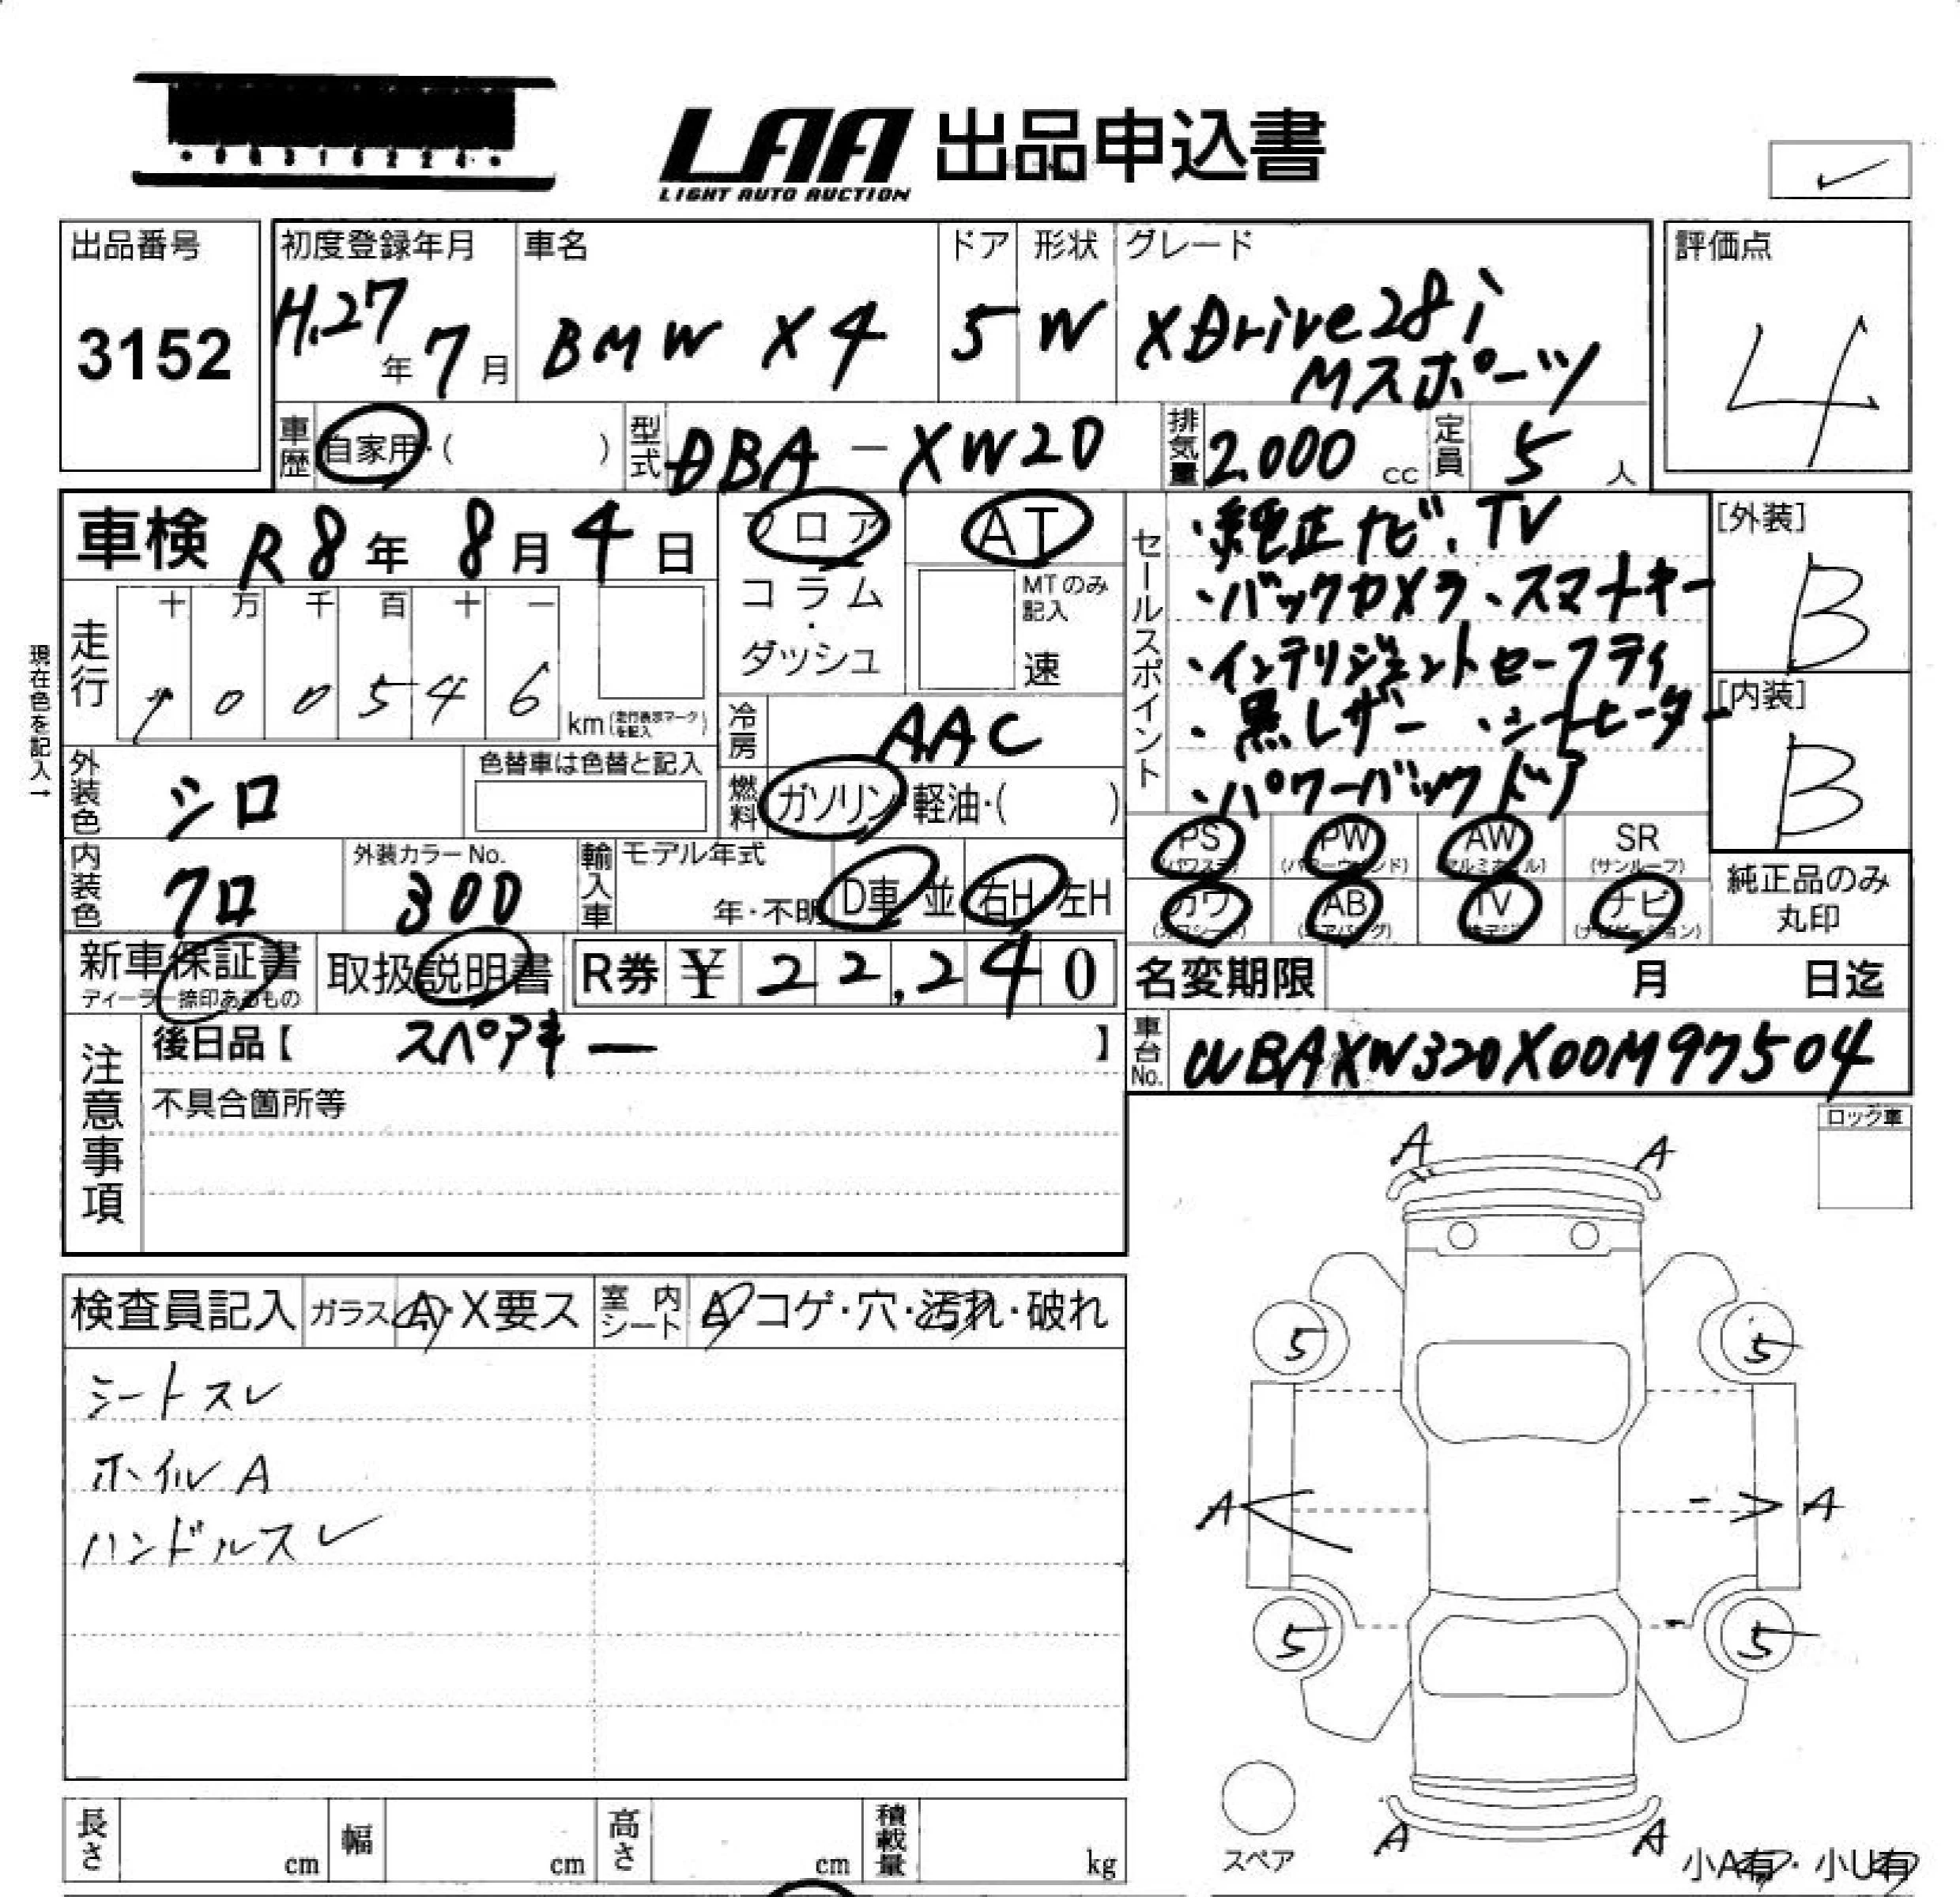 LAA 出品申込書
LIGHT AUTO AUCTION
出品番号
3152
初度登録年月
H.27年 7月
車名
BMW X4
ドア
5
形状
W
グレード
XDrive28i
Mスポーツ
評価点
4
車歴
自家用・( )
型式
DBA-XW20
排気量
2.000 cc
定員
5 人
車検 R8年 8月 4日
フロア
コラム
・
ダッシュ
AT
MTのみ記入
速
セールスポイント
・純正ナビ、TV
・バックカメラ、スマートキー
・インテリジェントセーフティ
・黒レザー ・シートヒーター
・パワーバックドア
[外装]
B
[内装]
B
現在色を記入→
走行
十 万 千 百 十 一
1 0 0 5 4 6
km(走行表示マークを記入)
冷房
AAC
外装色
シロ
色替車は色替と記入
燃料
ガソリン・軽油・( )
PS
(パワステ)
PW
(パワーウィンド)
AW
(アルミホイル)
SR
(サンルーフ)
カワ
(カワシート)
AB
(エアバッグ)
TV
ナビ
(ナビゲーション)
純正品のみ
丸印
内装色
クロ
外装カラーNo.
300
輸入車
モデル年式
年・不明
D車 並
右H 左H
新車保証書
ディーラー捺印あるもの
取扱説明書
R券 ¥ 22,240
名変期限 月 日迄
注意事項
後日品【 スペアキー 】
不具合箇所等
車台No.
WBAXW320X00M97504
ロック車
検査員記入
ガラス A・X要ス
室内シート
A コゲ・穴・汚れ・破れ
シートスレ
ホイルA
ハンドルスレ
A A
5 5
A A
5 5
A A
スペア
小A有・小U有
長さ cm
幅 cm
高さ cm
積載量 kg